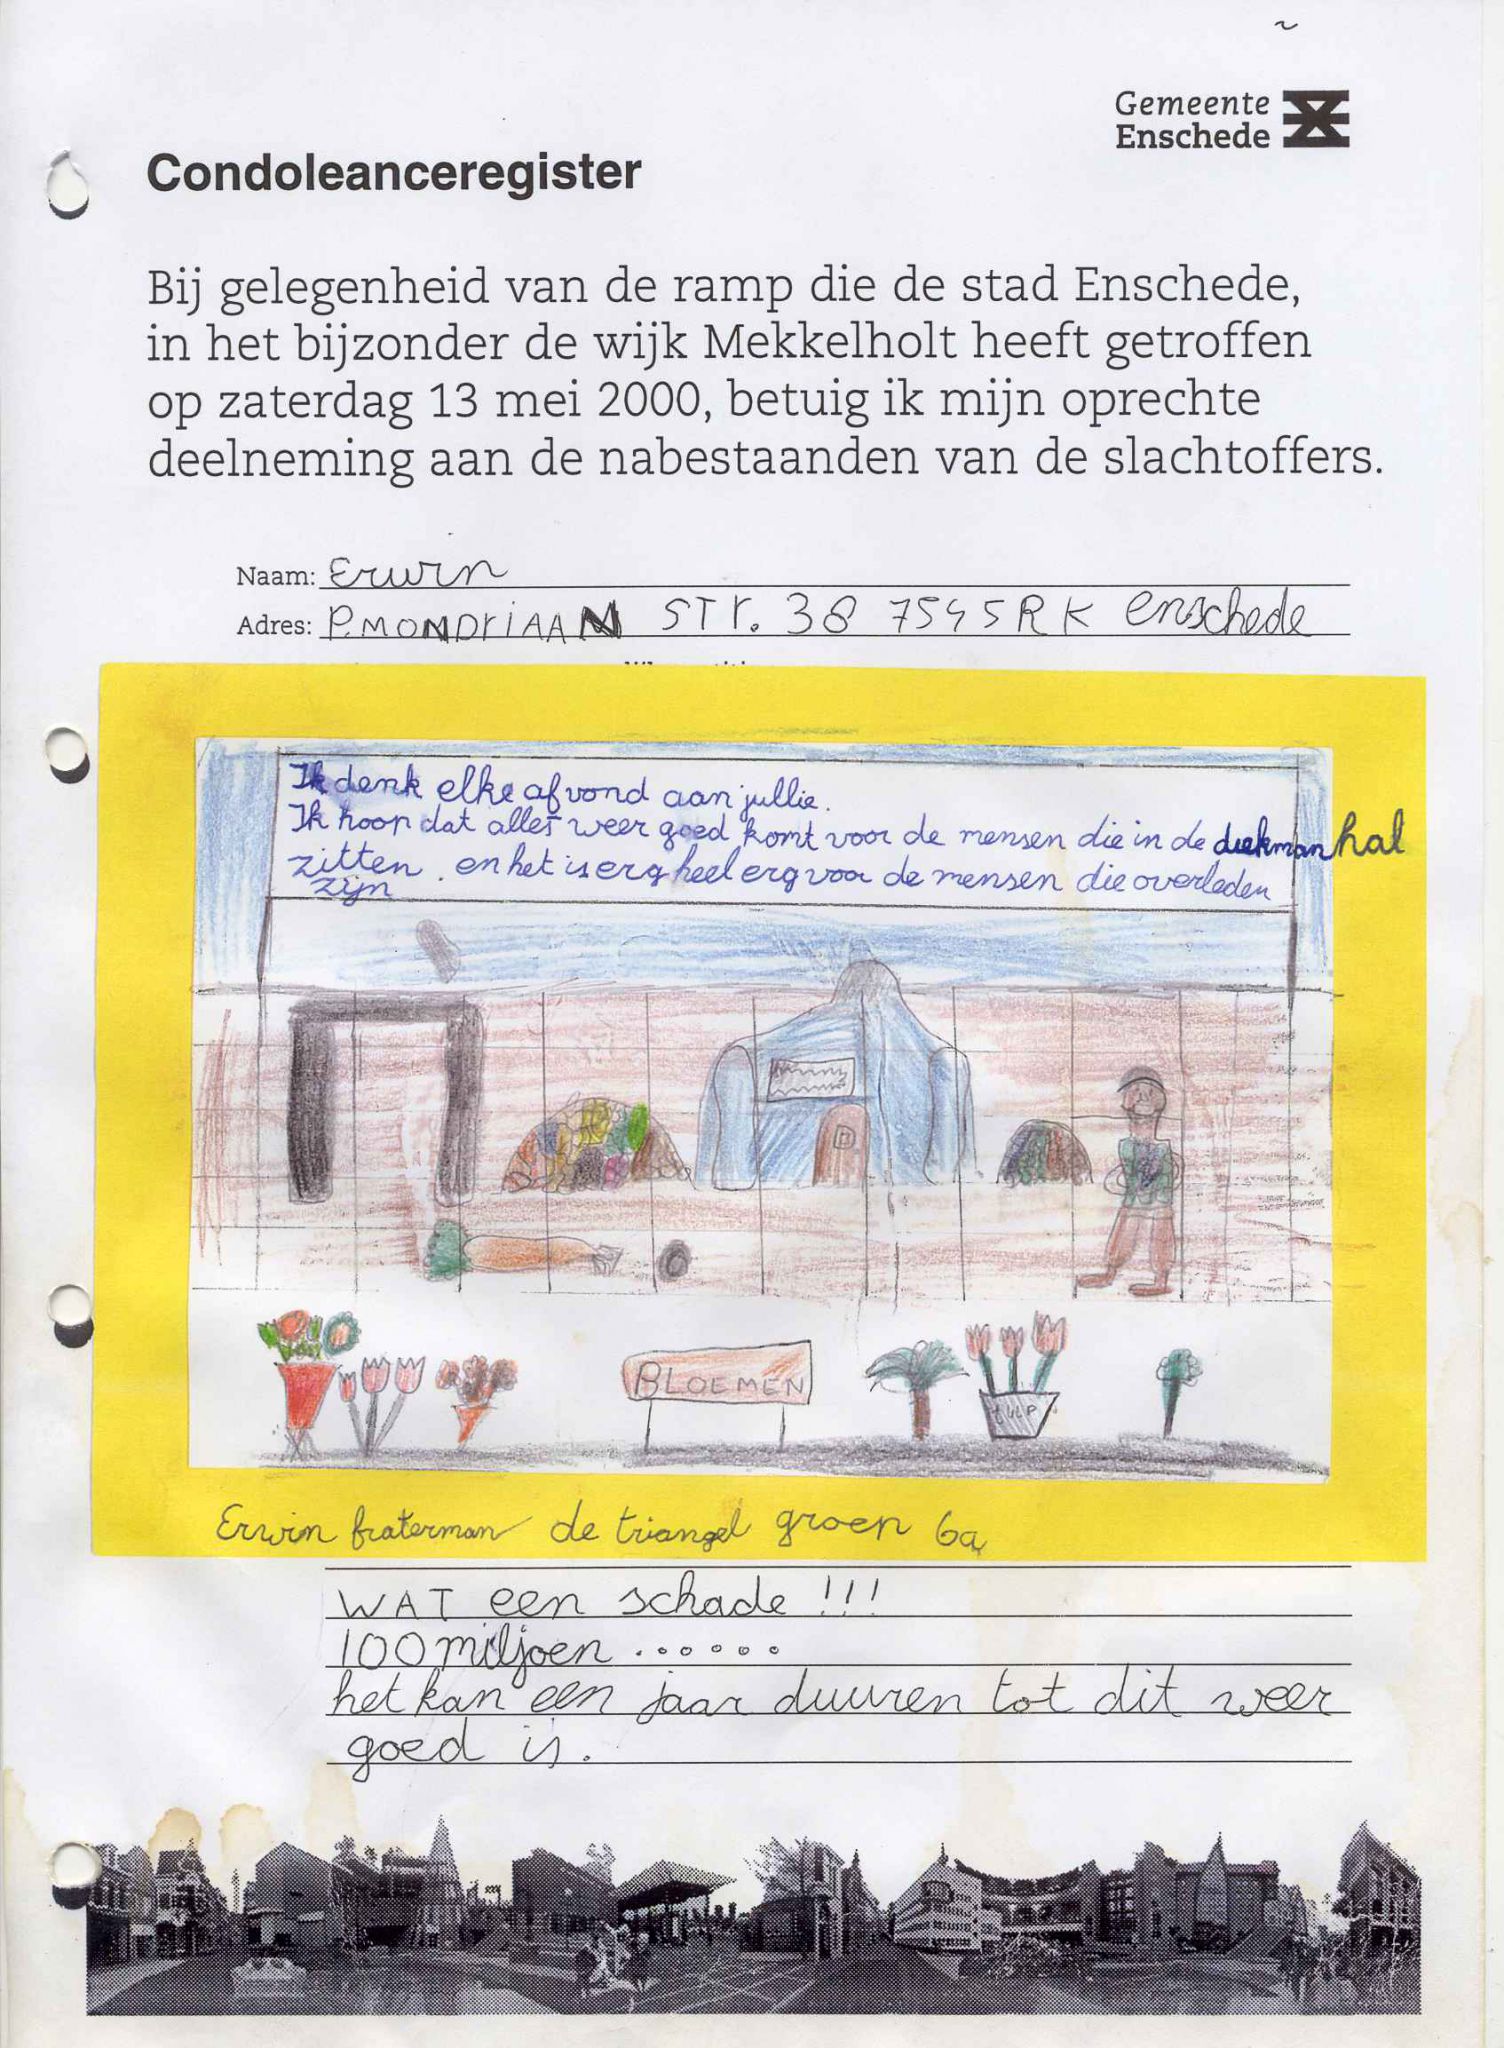 Gemeente
Enschede
Condoleanceregister
Bij gelegenheid van de ramp die de stad Enschede,
in het bijzonder de wijk Mekkelholt heeft getroffen
op zaterdag 13 mei 2000, betuig ik mijn oprechte
deelneming aan de nabestaanden van de slachtoffers.
Naam: Erwin
Adres: P.MONDriAAN STr. 38 7545RK enschede
Ik denk elke afvond aan jullie.
Ik hoop dat alles weer goed komt voor de mensen die in de diekmanhal
zitten. en het is erg heel erg voor de mensen die overleden
zijn
BLOEMEN
tulp
Erwin fraterman de triangel groep 6a
WAT een schade !!!
100 miljoen ......
het kan een jaar duuren tot dit weer
goed is.